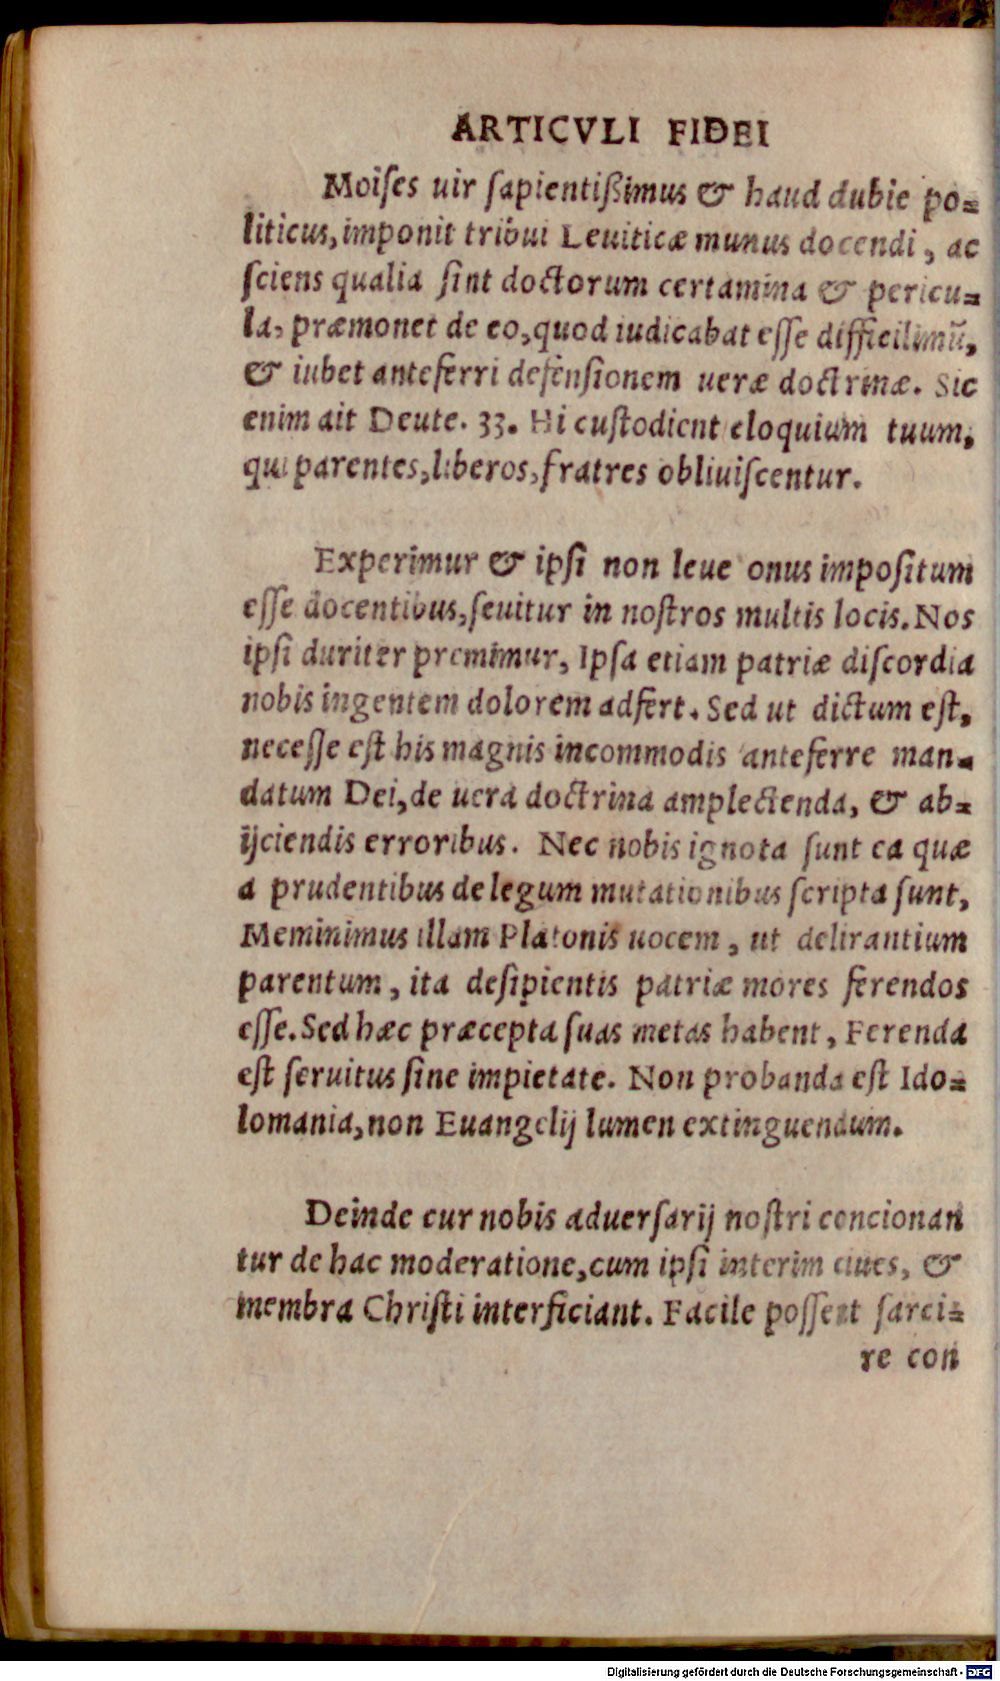 ARTICVLI FIDEI
Moiſes uir ſapientißimus & haud dubie po=
liticus, imponit tribui Leuiticæ munus docendi, ac
ſciens qualia ſint doctorum certamina & pericu=
la, præmonet de eo, quod iudicabat eſſe difficilimũ,
& iubet anteferri defenſionem ueræ doctrinæ. Sic
enim ait Deute. 33. Hi cuſtodient eloquium tuum,
qui parentes, liberos, fratres obliuiſcentur.
Experimur & ipſi non leue onus impoſitum
eſſe docentibus, ſeuitur in noſtros multis locis. Nos
ipſi duriter premimur, Ipſa etiam patriæ diſcordia
nobis ingentem dolorem adfert. Sed ut dictum eſt,
neceſſe eſt his magnis incommodis anteferre man=
datum Dei, de uera doctrina amplectenda, & ab=
ijciendis erroribus. Nec nobis ignota ſunt ea quæ
a prudentibus de legum mutationibus ſcripta ſunt,
Meminimus illam Platonis uocem, ut delirantium
parentum, ita deſipientis patriæ mores ferendos
eſſe. Sed hæc præcepta ſuas metas habent, Ferenda
eſt ſeruitus ſine impietate. Non probanda eſt Ido=
lomania, non Euangelij lumen extinguendum.
Deinde cur nobis aduerſarij noſtri concionan
tur de hac moderatione, cum ipſi interim ciues, &
membra Chriſti interficiant. Facile poſſent ſarci=
re con
Digitalisierung gefördert durch die Deutsche Forschungsgemeinschaft - DFG